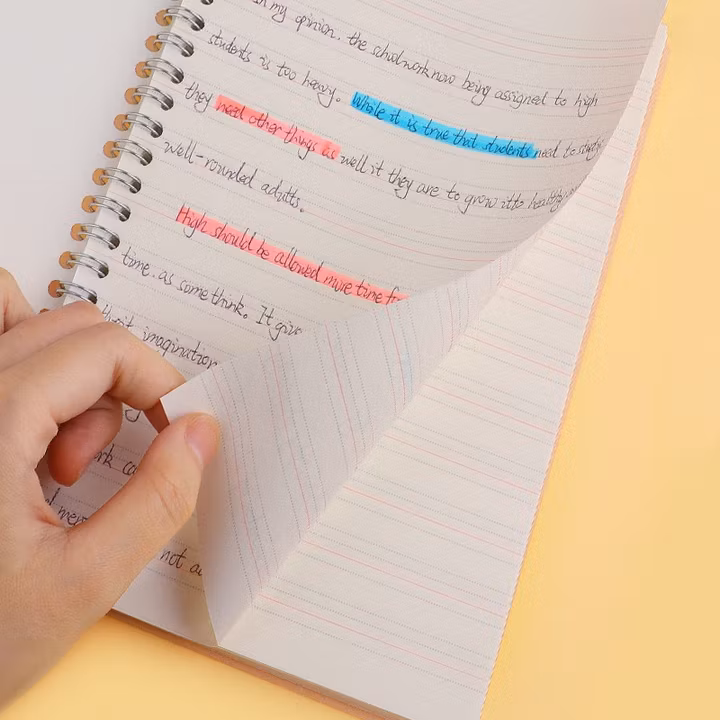 in my opinion. the schoolwork now being assigned to high
students is too heavy. While it is true that students need to study
they need other things as well it they are to grow itto healthy
well-rounded adults.
High should be allowed more time
time. as some think. It give
imagination
not